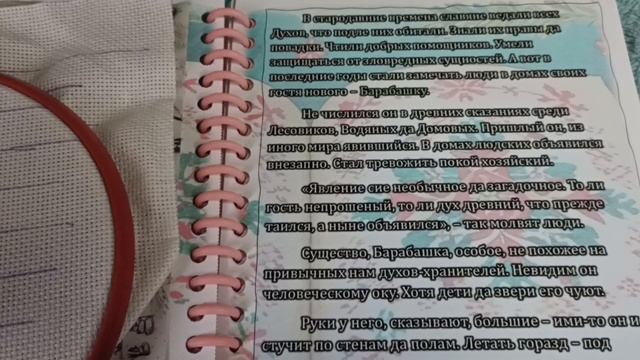 В стародавние времена славяне ведали всех
Духов, что подле них обитали. Знали их нравы да
повадки. Чтили добрых помощников. Умели
защищаться от зловредных сущностей. А вот в
последние годы стали замечать люди в домах своих
гостя нового – Барабашку.
Не числился он в древних сказаниях среди
Лесовиков, Водяных да Домовых. Пришлый он, из
иного мира явившийся. В домах людских объявился
внезапно. Стал тревожить покой хозяйский.
«Явление сие необычное да загадочное. То ли
гость непрошеный, то ли дух древний, что прежде
таился, а ныне объявился», – так молвят люди.
Существо, Барабашка, особое, не похожее на
привычных нам духов-хранителей. Невидим он
человеческому оку. Хотя дети да звери его чуют.
Руки у него, сказывают, большие – ими-то он и
стучит по стенам да полам. Летать горазд – под